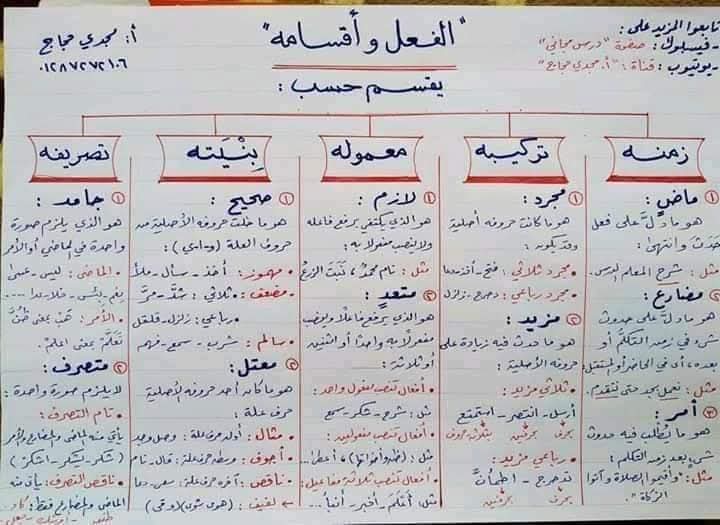 تابعوا المزيد على :
- فيسبوك : صفحة "درس مجاني"
- يوتيوب : قناة : "أ. مجدي حجاج"
"الفعل وأقسامه"
أ: مجدي حجاج
٠١٢٨٧٢٧٢١٠٦
يقسم حسب :
زمنه
① ماضٍ :
هو ما دلَّ على فعل
حَدَثَ وانتهى :
مثل : شرح المعلم الدرس.
② مضارع :
هو ما دلَّ على حدوث
شيء في زمن التكلم أو
بعده، أي في الحاضر أو المستقبل
مثل : نعمل بجد حتى نتقدم.
③ أمر :
هو ما يُطلب فيه حدوث
شيء بعد زمن التكلم :
مثل : "وأقيموا الصلاة وآتوا
الزكاة"
تركيبه
① مجرد :
هو ما كانت حروفه أصلية
وقد يكون :
• مجرد ثلاثي : فتح - أخذ - دعا
• مجرد رباعي : دحرج - زلزل
② مزيد :
هو ما حدث فيه زيادة على
حروفه الأصلية :
• ثلاثي مزيد :
أرسل - انتصر - استمتع
بحرف بحرفين بثلاثة حروف
• رباعي مزيد :
تدحرج - اطمأنَّ
بحرف بحرفين
معموله
① لازم :
هو الذي يكتفي برفع فاعله
ولا ينصب مفعولا به :
مثل : نام محمدٌ، نَبَتَ الزرعُ
② متعدٍ :
هو الذي يرفع فاعلًا وينصب
مفعولًا به واحدًا أو اثنين
أو ثلاثة :
• أفعال تنصب مفعول واحد :
مثل : شرح - شكر - سمع
• أفعال تنصب مفعولين :
مثل : (ظن وأخواتها)، أعطى...
• أفعال تنصب ثلاثة مفاعيل :
مثل : أَعْلَمَ - أخبر - أنبأ...
بِنْيَته
① صحيح :
هو ما خلت حروفه الأصلية من
حروف العلة (و-ا-ي) :
• مهموز : أخذ - سأل - ملأ
• مضعف : ثلاثي : شدَّ - مرَّ
رباعي : زلزل - قلقل
• سالم : شرب - سمع - فهم
② معتل :
هو ما كان أحد حروفه الأصلية
حرف علة :
• مثال : أوله حرف علة : وصل وجد
• أجوف : وسطه حرف علة : قال - نام
• ناقص : آخره حرف علة : سعى - دعا
• لفيف : (هوى شوى) (وقى)
تصريفه
① جامد :
هو الذي يلزم صورة
واحدة في الماضي أو الأمر
• الماضي : ليس - عسى
نعم - بئس - خلا - عدا ...
• الأمر : هَبْ بمعنى ظُنَّ
تَعَلَّمْ بمعنى اعلم.
② متصرف :
لا يلزم صورة واحدة :
• تام التصرف :
يأتي منه الماضي والمضارع والأمر
(شكر - يشكر - اشكر)
• ناقص التصرف : يأتي منه
الماضي والمضارع فقط : كاد